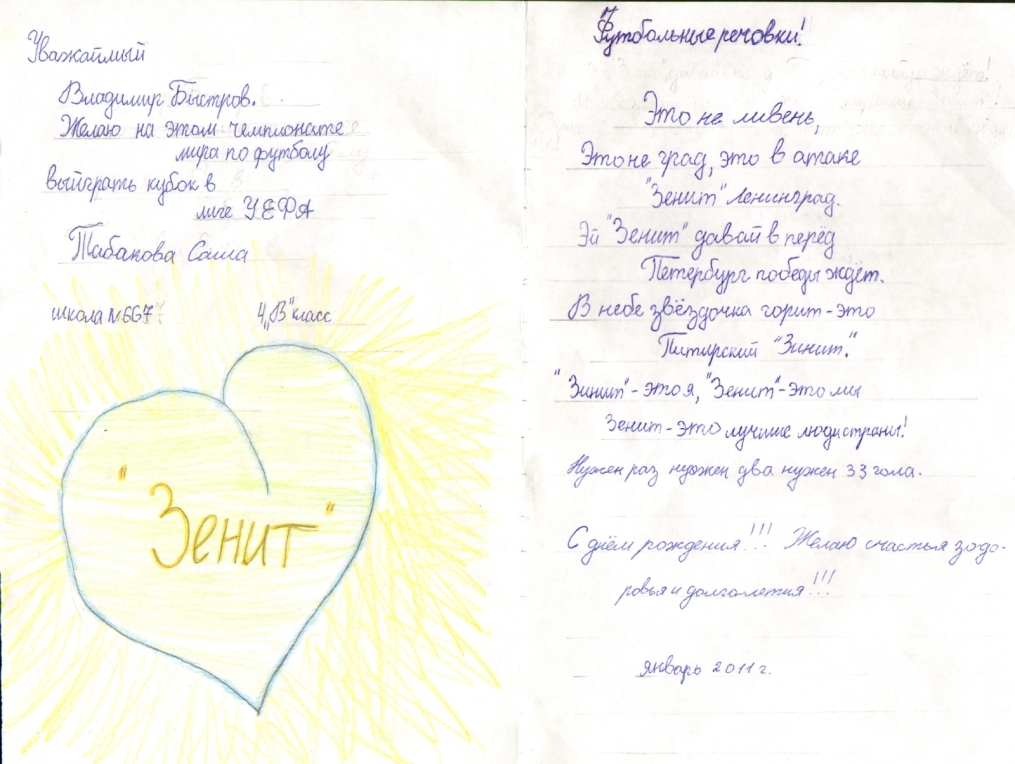 Уважаймый
Владимир Быстров.
Желаю на этом чемпионате
мира по футболу
выйграть кубок в
лиге УЕФА
Табакова Саша
школа №667
4 „В" класс
"Зенит"
Футбольные речовки!
Это не ливень,
Это не град, это в атаке
"Зенит" Ленинград.
Эй "Зенит" давай в перёд
Петербург победы ждёт.
В небе звёздочка горит - это
Питирский "Зинит."
"Зинит" - это я, "Зенит" - это мы
Зенит - это лучшие люди страны!
Нужен раз нужен два нужен 33 гола.
С днём рождения!!! Желаю счастья здо-
ровья и долголетия!!!
январь 2011 г.